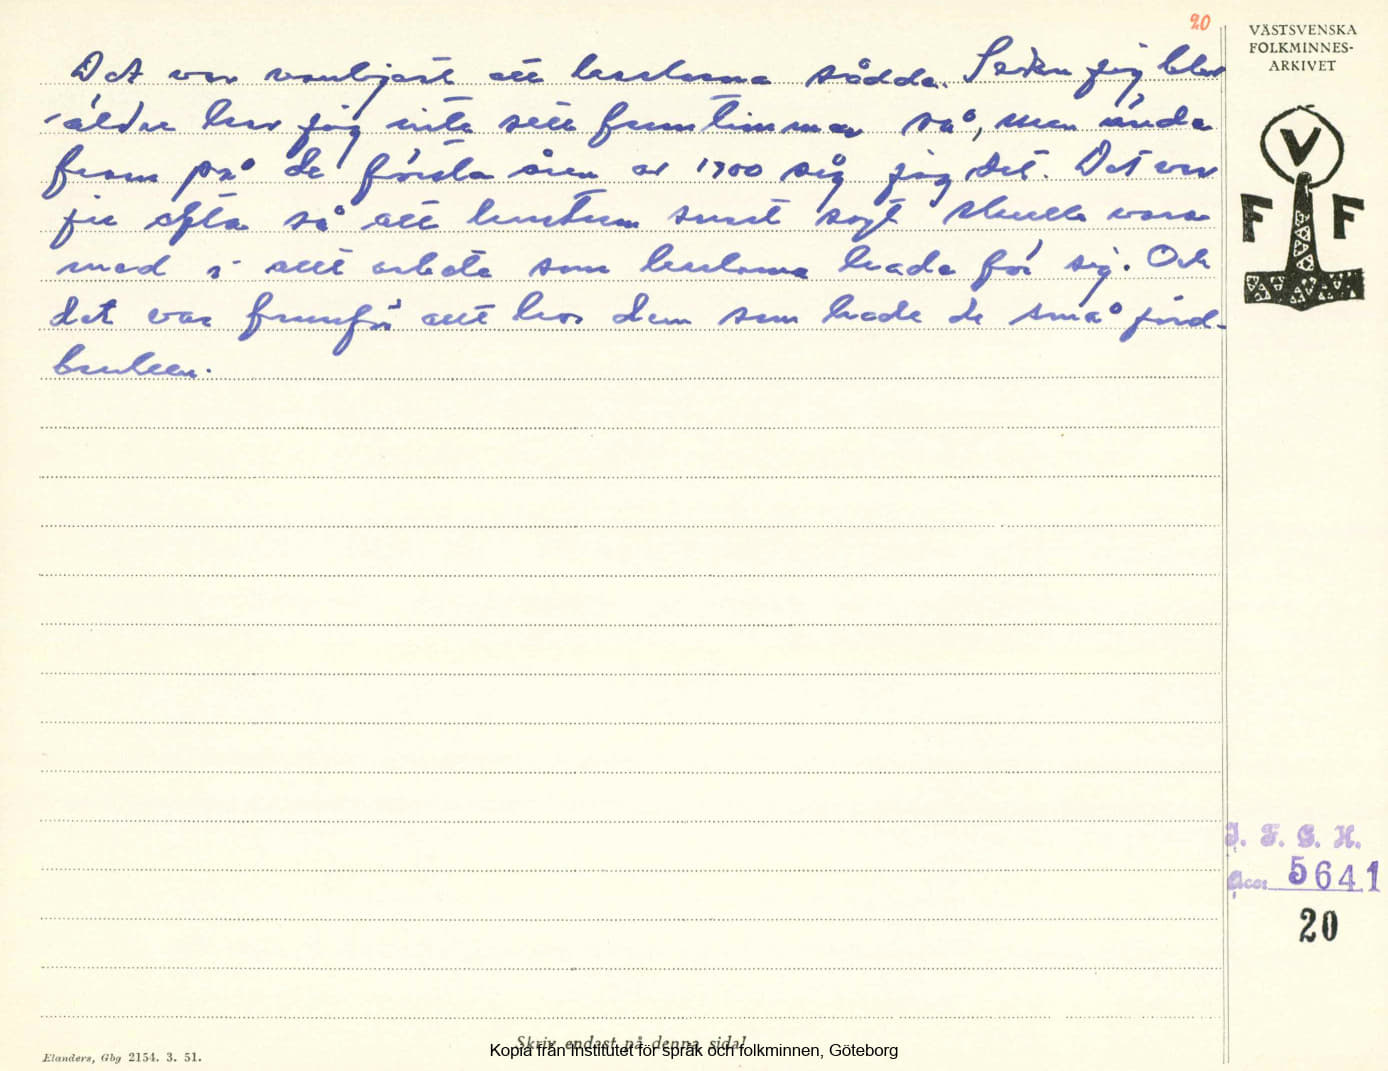 20
VÄSTSVENSKA
FOLKMINNES-
ARKIVET
Det var vanligast att karlarna sådde. Sedan jag blev
äldre har jag inte sett fruntimmer så, men ända
fram på de första åren av 1900 såg jag det. Det var
ju ofta så att hustrun snart sagt skulle vara
med i allt arbete som karlarna hade för sig. Och
det var framför allt hos dem som hade de små jord-
bruken.
V
F F
I. F. G. H.
Acc: 5641
20
Skriv endast på denna sida!
Elanders, Gbg 2154. 3. 51.
Kopia från Institutet för språk och folkminnen, Göteborg